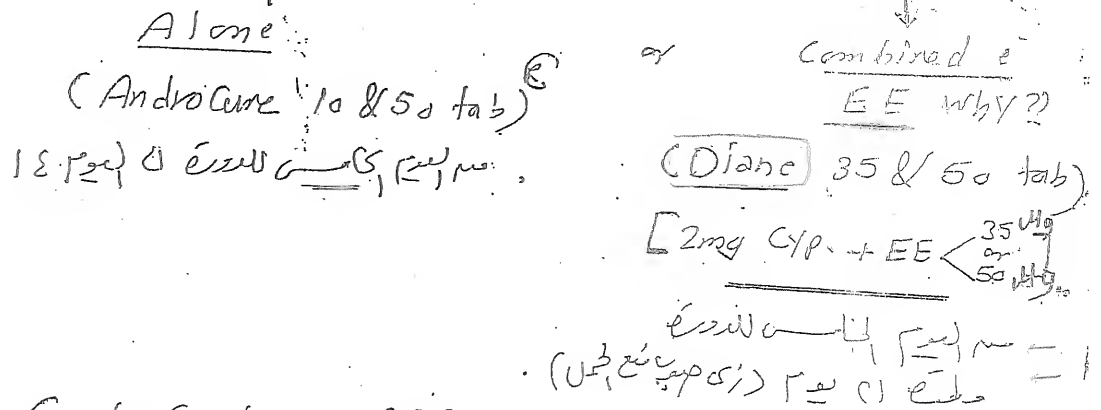 Alone
(Androcure 10 & 50 tab) ®
من اليوم الخامس للدورة لـ اليوم ١٤.
or
Combined e
EE Why??
(Diane 35 & 50 tab)
[2mg Cyp. + EE < 35 Mg
or
50 Mg
= من اليوم الخامس للدورة
ولمدة ٢١ يوم (زي حبوب منع الحمل).